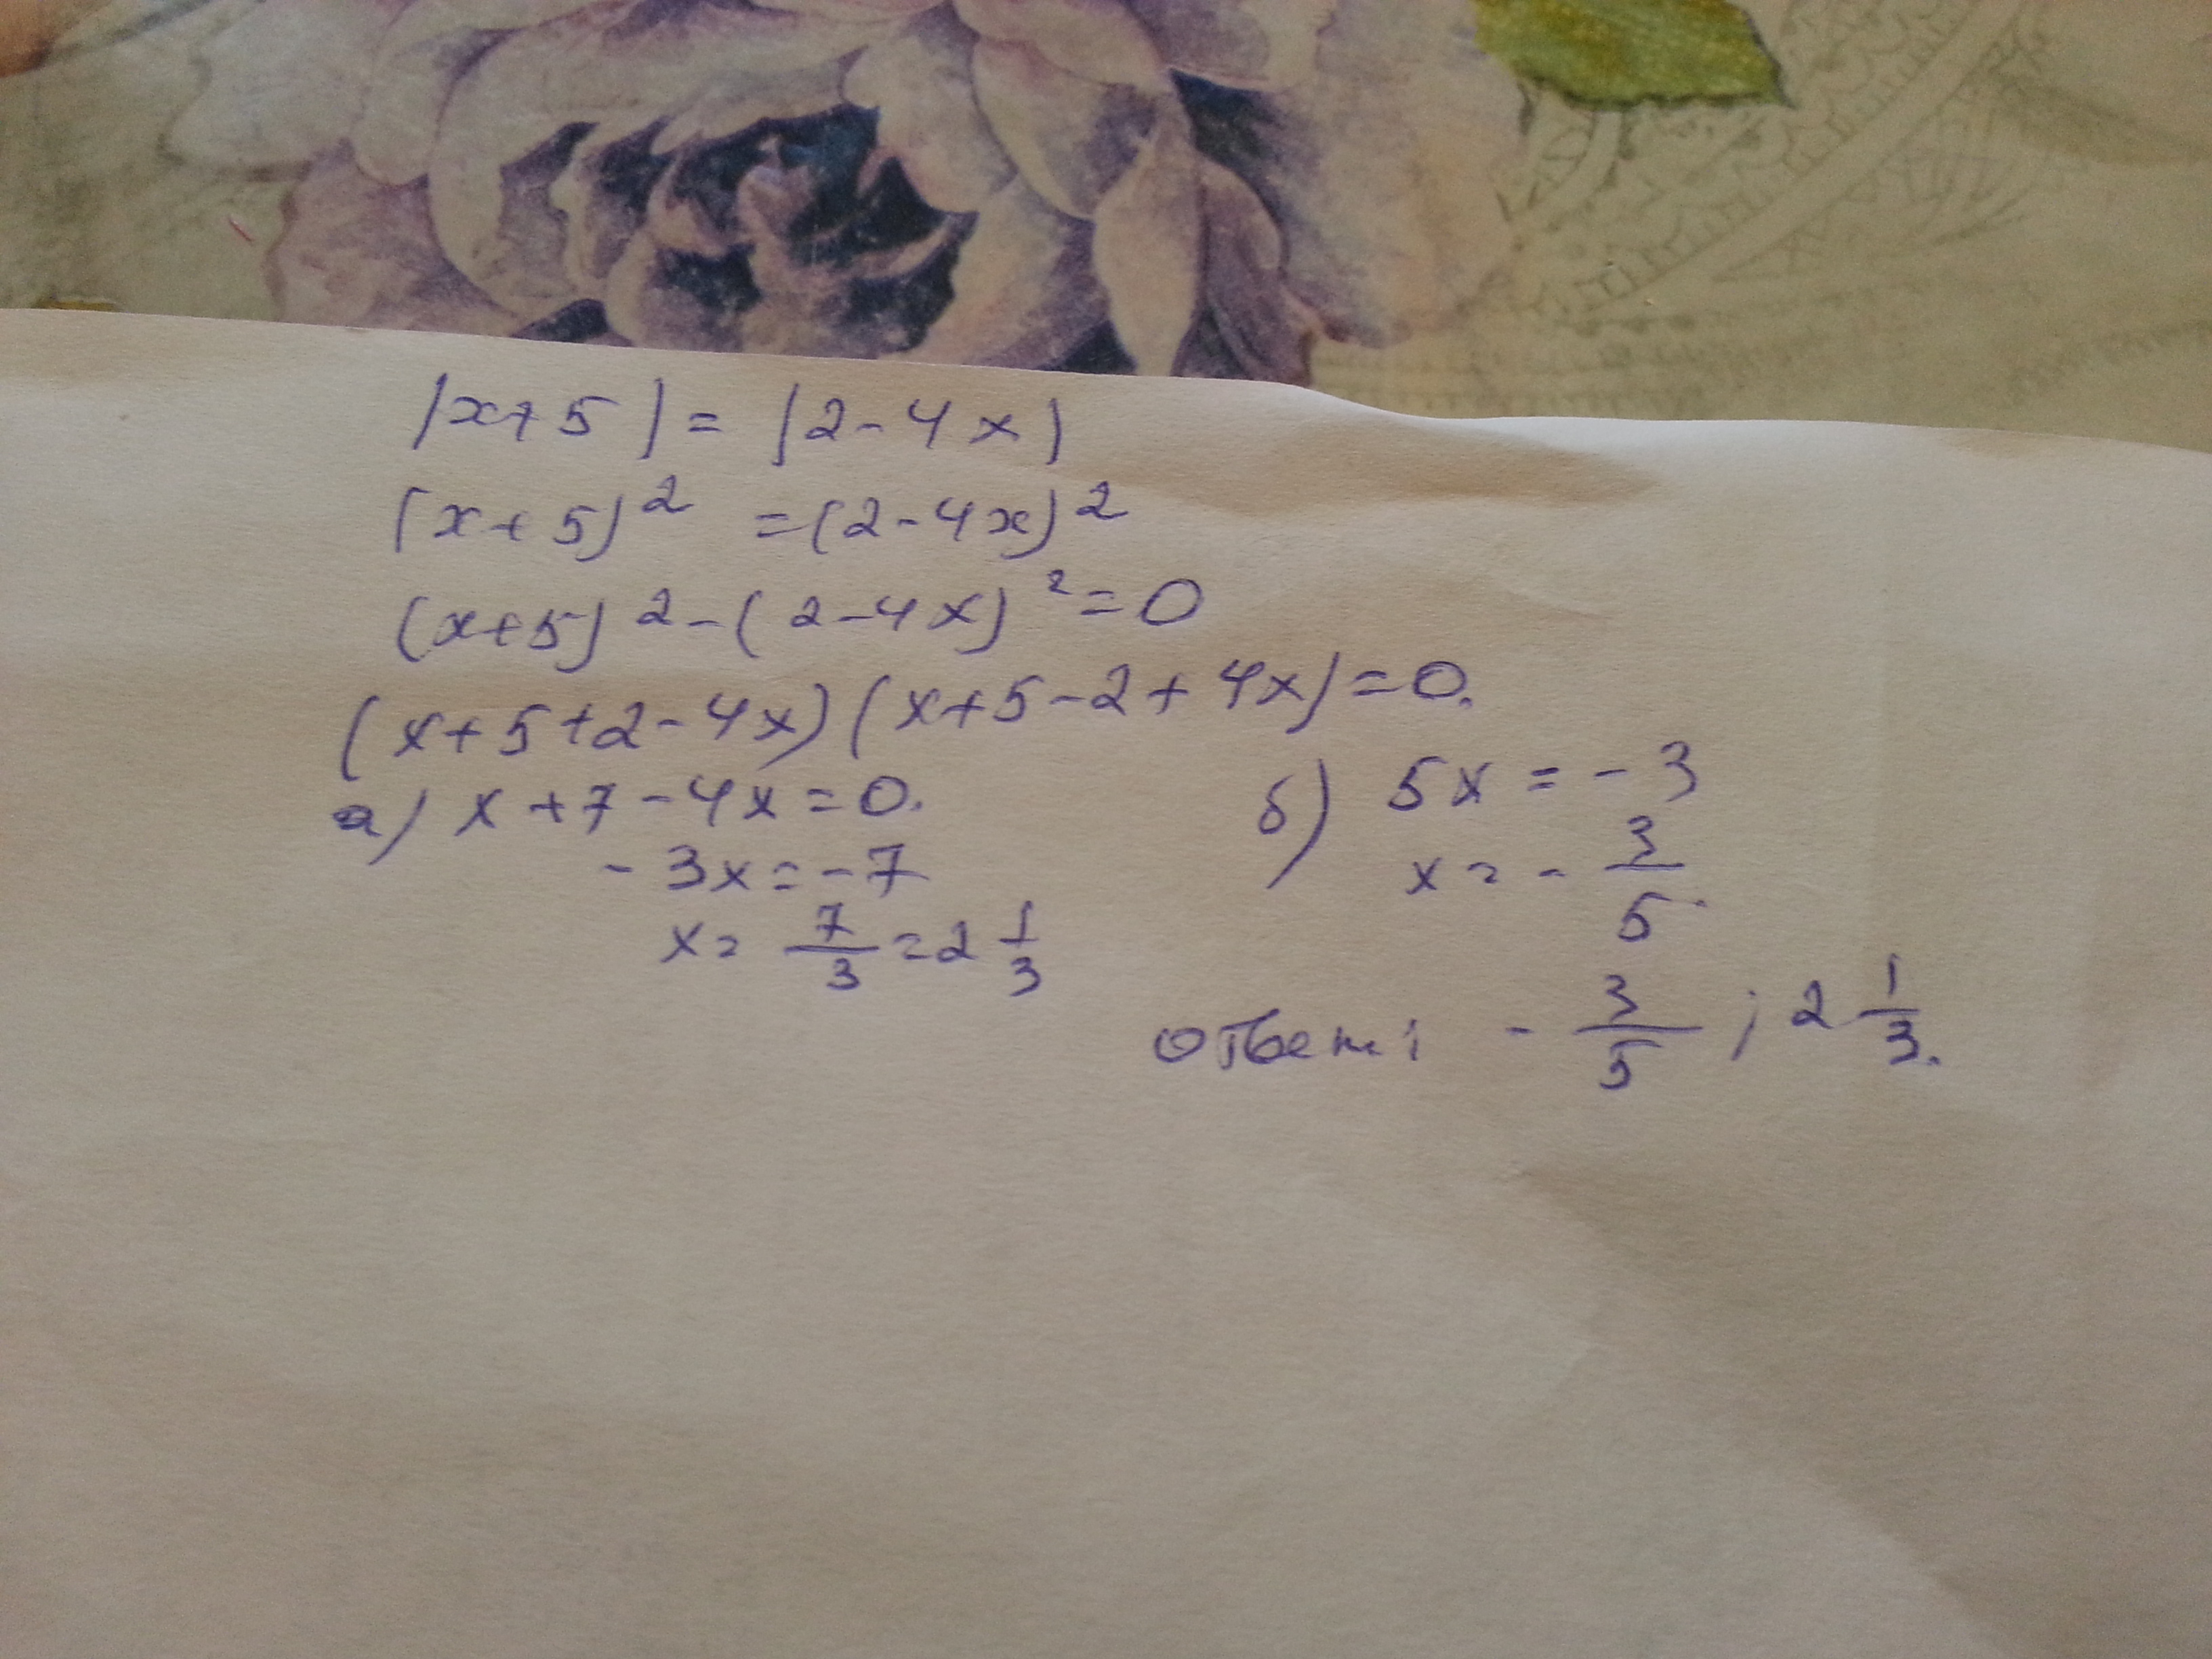 |x+5|=|2-4x|
(x+5)²=(2-4x)²
(x+5)²-(2-4x)²=0
(x+5+2-4x)(x+5-2+4x)=0.
а) x+7-4x=0.
-3x=-7
x=7/3=2 1/3
б) 5x=-3
x=-3/5.
ответ: -3/5; 2 1/3.